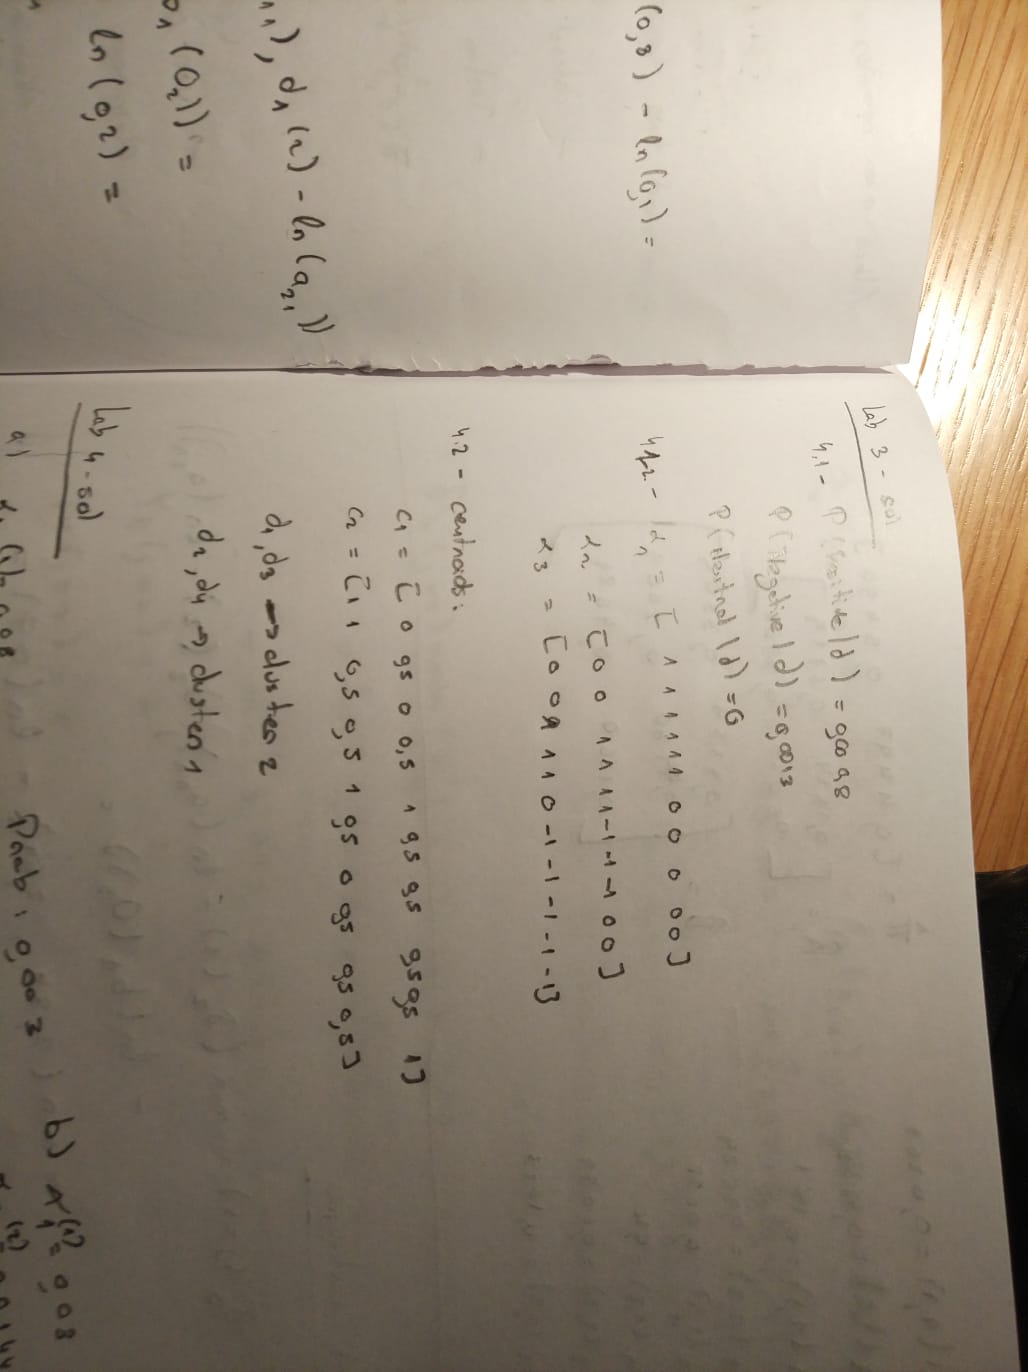 (0,8) - ln(0,1) =
), d1 (2) - ln(a21))
1 (O2)) =
ln(0,2) =
Lab 3 - sol
4.1 - P(Positive|d) = 0,0098
P(Negative|d) = 0,0013
P(Neutral|d) = 0
d1 = [ 1 1 1 1 1 1 0 0 0 0 0]
d2 = [0 0 1 1 1 1 -1 -1 -1 0 0]
d3 = [0 0 1 1 1 0 -1 -1 -1 -1 -1]
4.2 - centroids:
C1 = [ 0 0,5 0 0,5 1 0,5 0,5 0,5 0,5 1]
C2 = [1 1 0,5 0,5 1 0,5 0 0,5 0,5 0,5]
d1, d3 → cluster 2
d2, d4 → cluster 1
Lab 4 - sol
a)
Prob: 0,003
b)
= 0,08